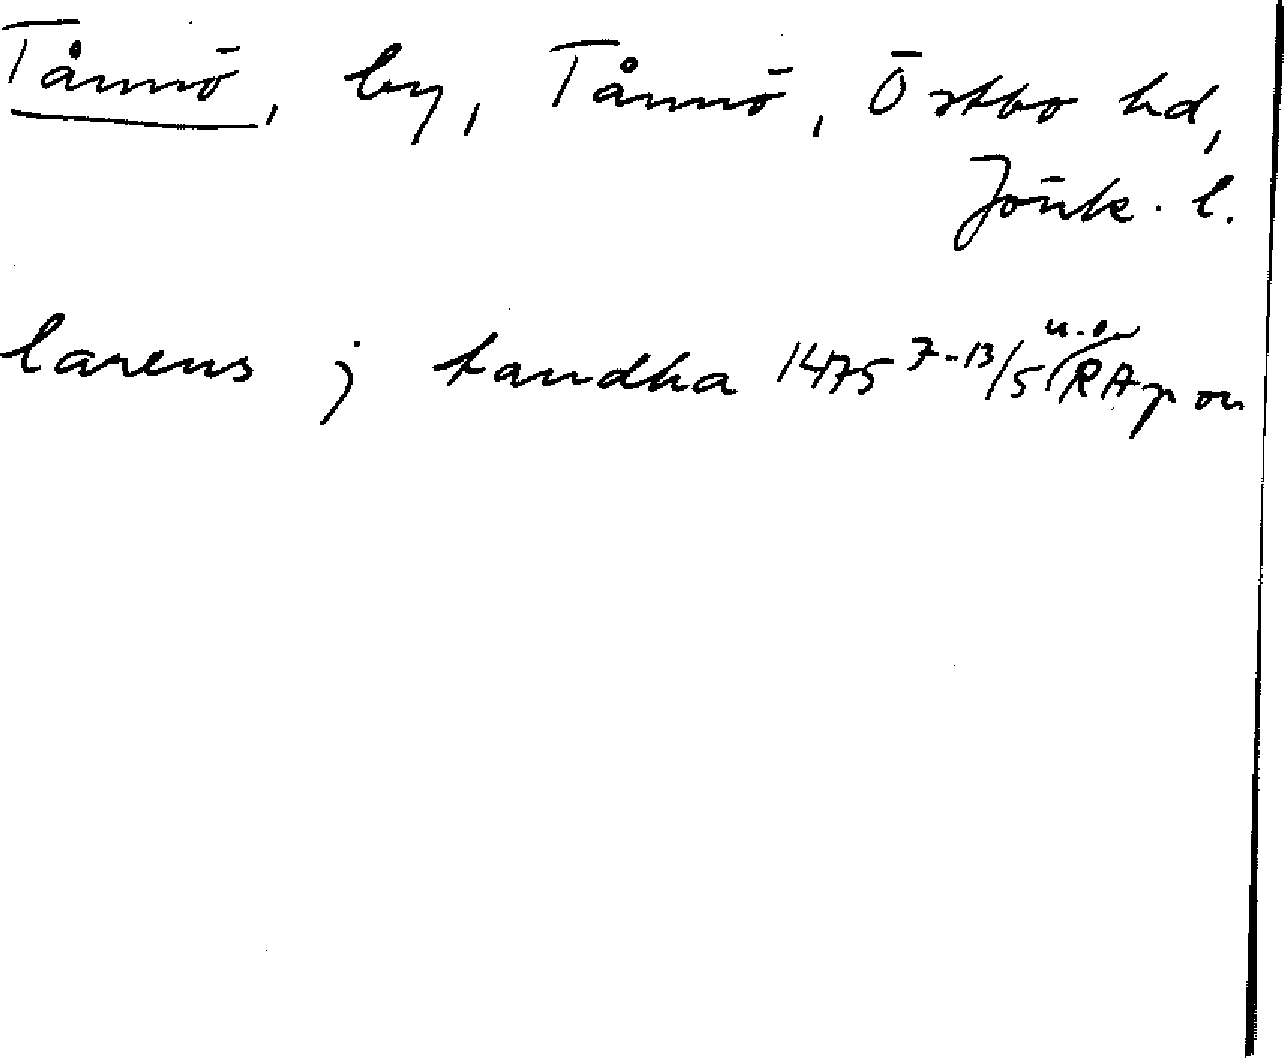 Tånnö, by, Tånnö, Östbo hd,
Jönk. l.
larens j tandha 1475 7-13/5 u.o. RAp or